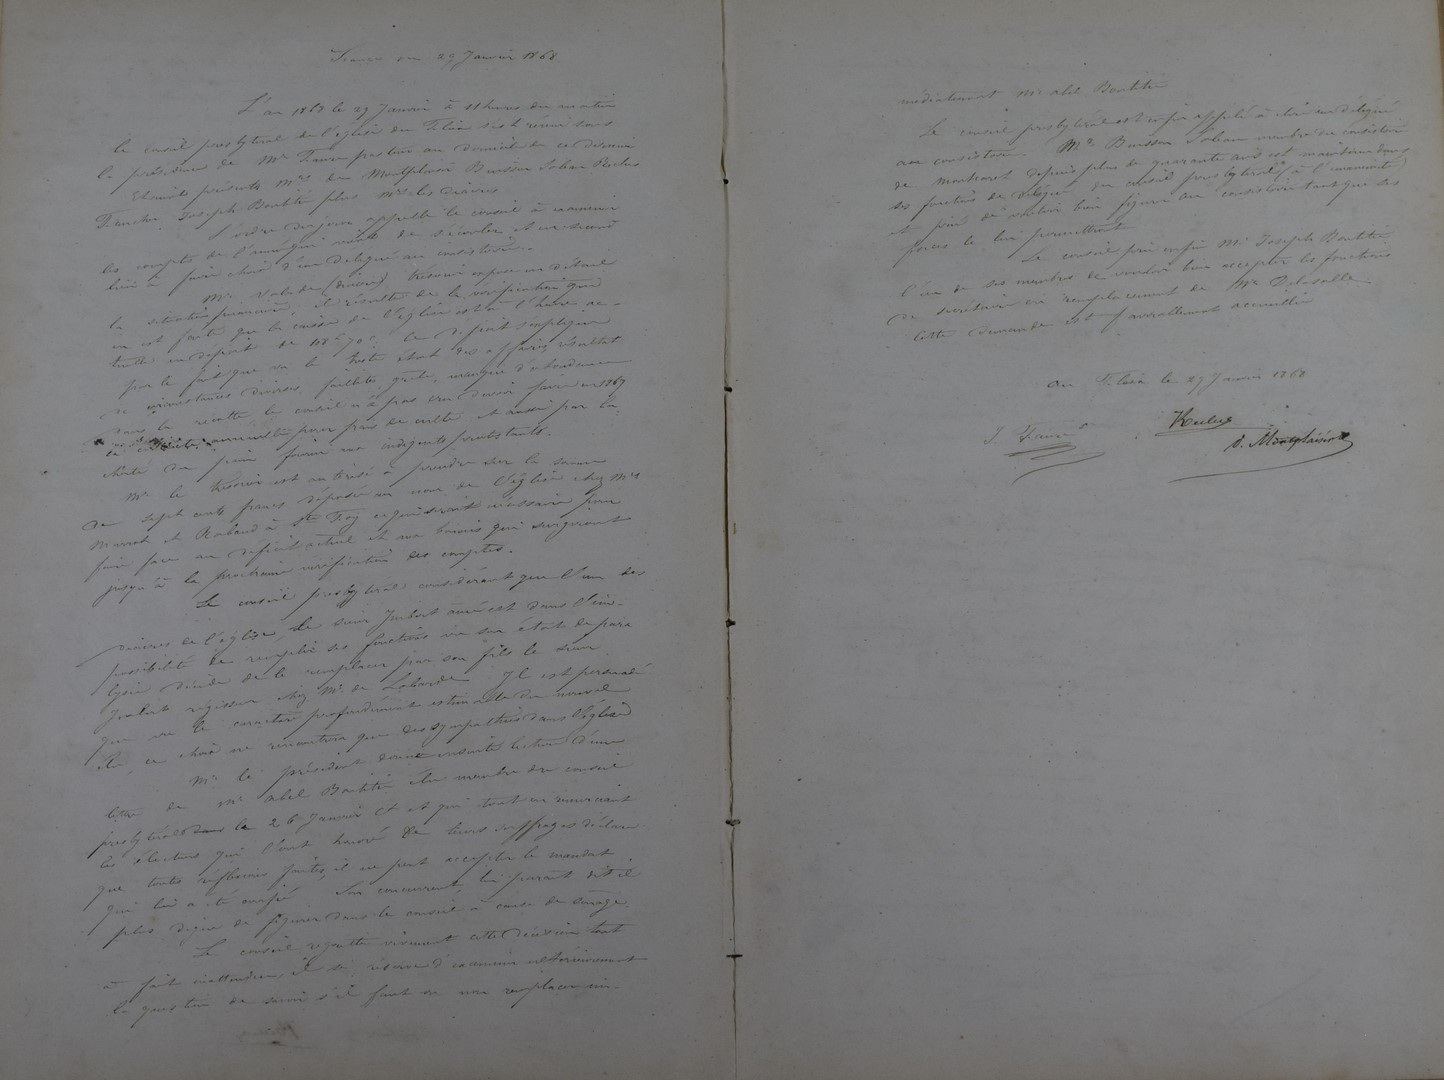 Séance du 29 Janvier 1868
L'an 1868 le 29 Janvier à 11 heures du matin
le conseil presbytéral de l'église du Fleix s'est réuni sous
la présidence de Mr Faure pasteur au domicile de ce dernier
Etaient présents Mrs de Montplaisir Buisson Jolean Reclus
Faucher Joseph Boutité plus Mrs les diacres
L'ordre du jour appelle le conseil à examiner
les comptes de l'année qui vient de s'écouler et en second
lieu à faire choix d'un délégué au consistoire.
Mr Valade (diacre) trésorier expose en détail
la situation financière, il résulte de la vérification qui
en est faite que la caisse de l'église est à l'heure ac-
tuelle en déficit de 118f 70c. Ce déficit s'explique
par le fait que vu le triste état des affaires résultat
de circonstances diverses, faillites, grêle, manque d'abondance
dans la récolte le conseil n'a pas cru devoir faire en 1867
la collecte annuelle pour frais de culte et aussi par la
cherté du pain fourni aux indigents protestants.
Mr le trésorier est autorisé à prendre sur la somme
de sept cents francs déposée au nom de l'église chez Mrs
Marrot et Rabaud à Ste Foy ce qui serait nécessaire pour
faire face au déficit actuel et aux besoins qui surgiront
jusqu'à la prochaine vérification des comptes.
Le conseil presbytéral considérant que l'un des
diacres de l'église, le sieur Joubert aîné est dans l'im-
possibilité de remplir ses fonctions vu son état de para
lysie décide de le remplacer par son fils le sieur
Joubert régisseur chez Mr de Labarde. Il est persuadé
que vu le caractère profondément estimable du nouvel
élu, ce choix ne rencontrera que des sympathies dans l'église
Mr le président donne ensuite lecture d'une
lettre de Mr Abel Boutité élu membre du conseil
presbytéral le 26 Janvier ct et qui tout en remerciant
les électeurs qui l'ont honoré de leurs suffrages déclare
que toutes réflexions faites, il ne peut accepter le mandat
qui lui a été confié. Son concurrent, lui paraît dit il
plus digne de figurer dans le conseil à cause de son âge.
Le conseil regrette vivement cette décision tout
à fait inattendue, il se réserve d'examiner ultérieurement
la question de savoir s'il faut ou non remplacer im-
médiatement Mr Abel Boutité
Le conseil presbytéral est enfin appelé à élire un délégué
au consistoire. Mr Buisson Jolean membre du consistoire
de Montcaret depuis plus de quarante ans est maintenu dans
ses fonctions de délégué du conseil presbytéral (à l'unanimité)
et prié de vouloir bien figurer au consistoire tant que ses
forces le lui permettront
Le conseil prie enfin Mr Joseph Boutité
l'un de ses membres de vouloir bien accepter les fonctions
de secrétaire en remplacement de Mr Delasalle
Cette demande est favorablement accueillie
au Fleix le 29 Janvier 1868
J Faure
Reclus
O. Montplaisir